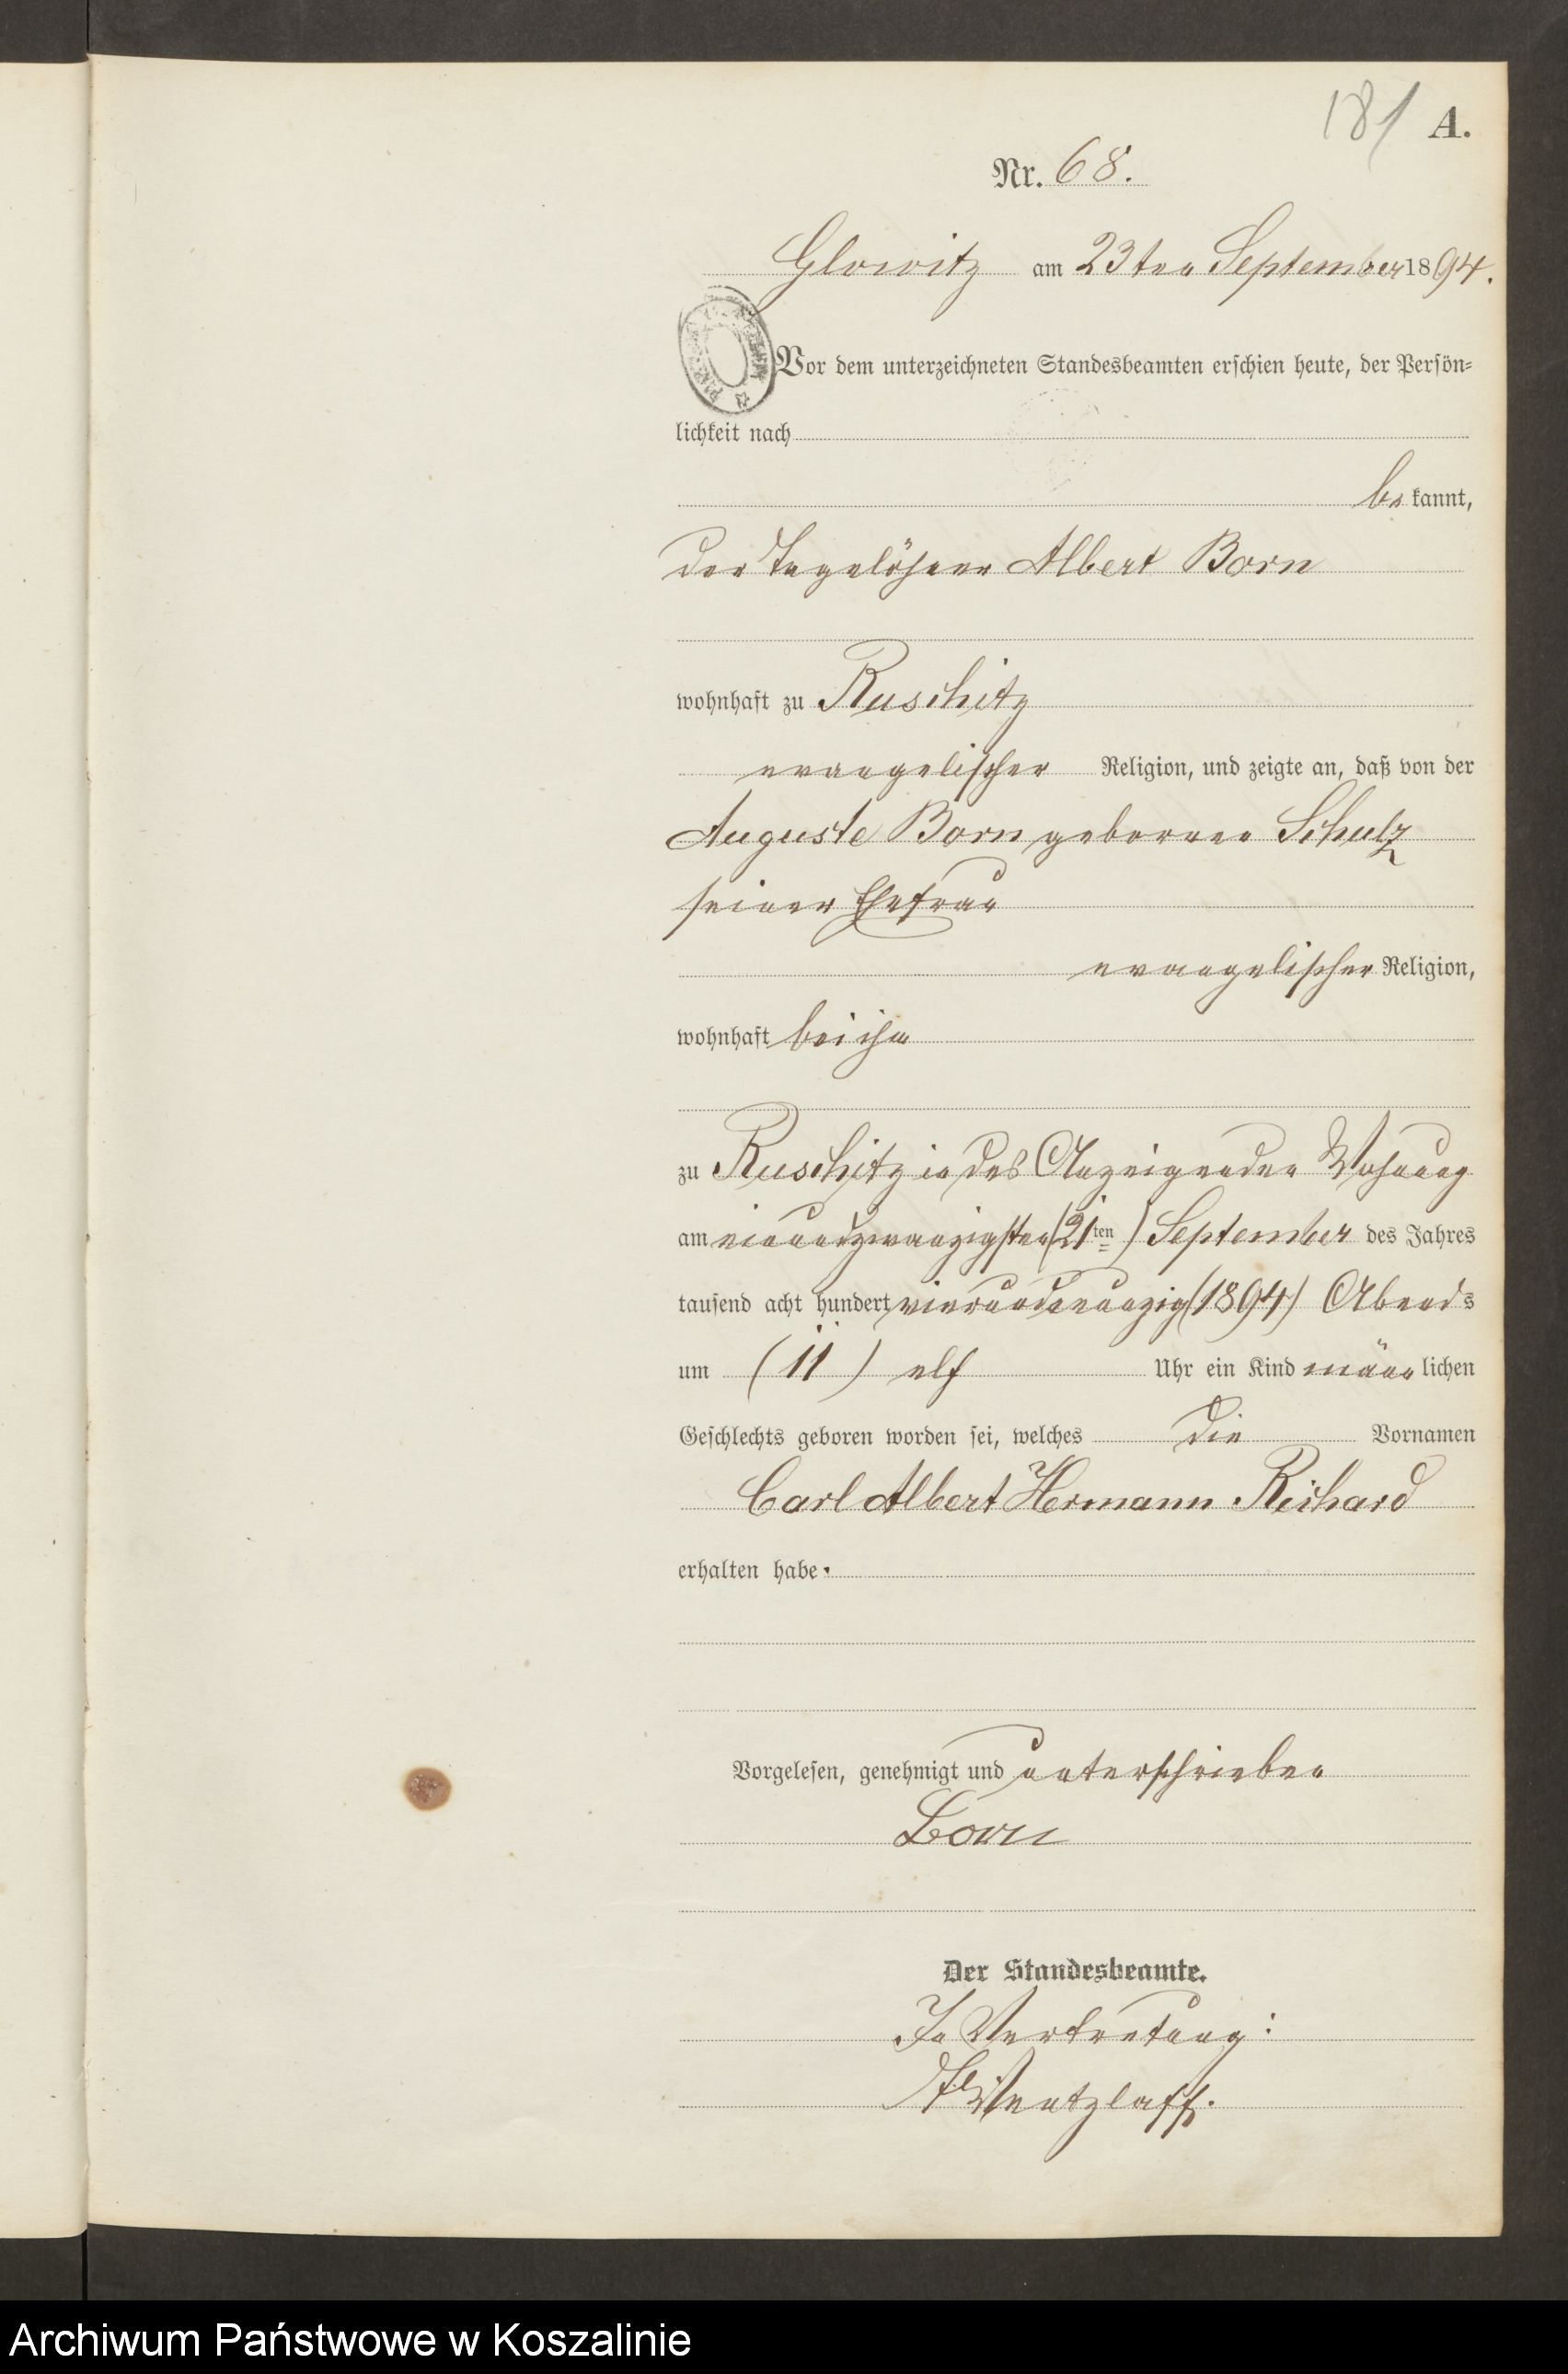 181 A.
Nr. 68.
Glowitz am 23ten September 1894.
Vor dem unterzeichneten Standesbeamten erschien heute, der Persön-
lichkeit nach
be kannt,
der Tagelöhner Albert Born
wohnhaft zu Ruschitz
evangelischer Religion, und zeigte an, daß von der
Auguste Born geborenen Schulz
seiner Ehefrau
evangelischer Religion,
wohnhaft bei ihm
zu Ruschitz in des Anzeigenden Wohnung
am einundzwanzigsten (21ten) September des Jahres
tausend acht hundert vierundneunzig (1894) Abends
um (11) elf Uhr ein Kind männlichen
Geschlechts geboren worden sei, welches die Vornamen
Carl Albert Hermann Richard
erhalten habe.
Vorgelesen, genehmigt und unterschrieben
Born
Der Standesbeamte.
In Vertretung:
Wentzlaff.
Archiwum Państwowe w Koszalinie